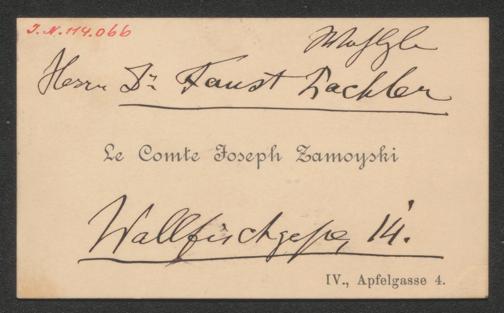 J.N. 114.066
Wohlgb
Herrn Dr Faust Pachler
Le Comte Joseph Zamoyski
Wallfischgasse, 14.
IV., Apfelgasse 4.